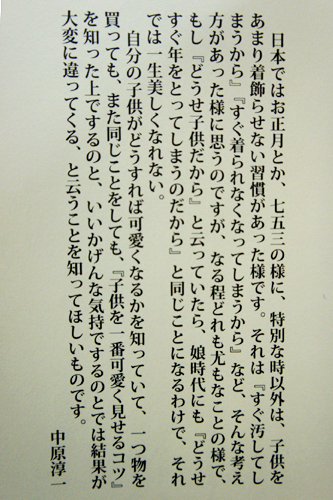 日本ではお正月とか、七五三の様に、特別な時以外は、子供を
あまり着飾らせない習慣があった様です。それは『すぐ汚してし
まうから』『すぐ着られなくなってしまうから』など、そんな考え
方があった様に思うのですが、なる程どれも尤もなことの様で、
もし『どうせ子供だから』と云っていたら、娘時代にも『どうせ
すぐ年をとってしまうのだから』と同じことになるわけで、それ
では一生美しくなれない。
自分の子供がどうすれば可愛くなるかを知っていて、一つ物を
買っても、また同じことをしても、『子供を一番可愛く見せるコツ』
を知った上でするのと、いいかげんな気持でするのとでは結果が
大変に違ってくる、と云うことを知ってほしいものです。
中原淳一